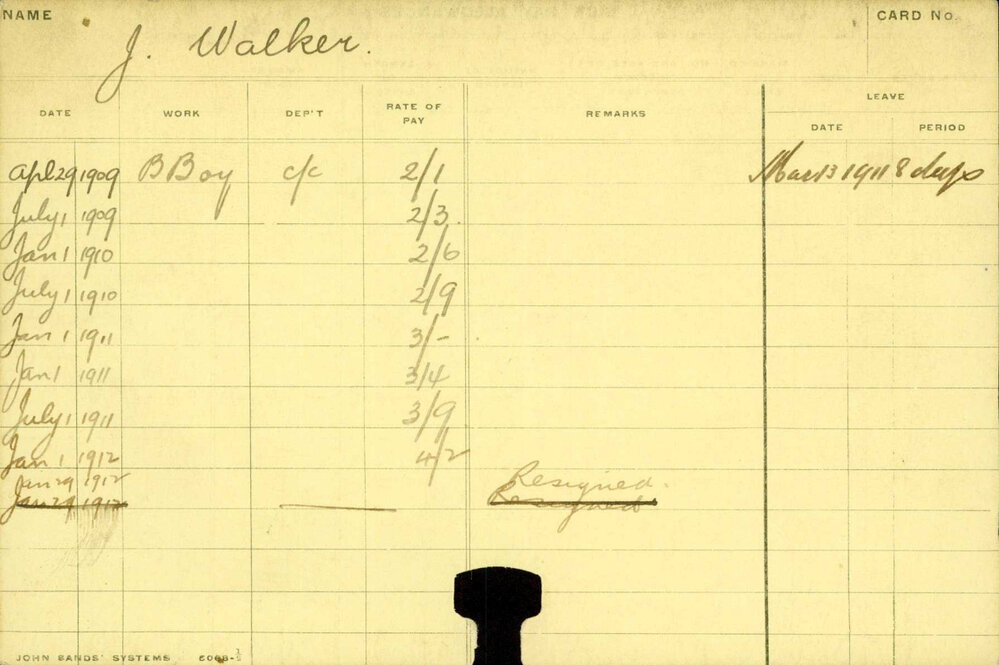 NAME J. Walker. CARD No.
LEAVE
DATE WORK DEP'T RATE OF PAY REMARKS DATE PERIOD
Apl 29 1909 B Boy c/c 2/1 Mar 13 1911 8 days
July 1 1909 2/3
Jan 1 1910 2/6
July 1 1910 2/9
Jan 1 1911 3/-
Jan 1 1911 3/4
July 1 1911 3/9
Jan 1 1912 4/2
Jan 29 1912 Resigned.
Jan 29 1912 Resigned
JOHN SANDS' SYSTEMS